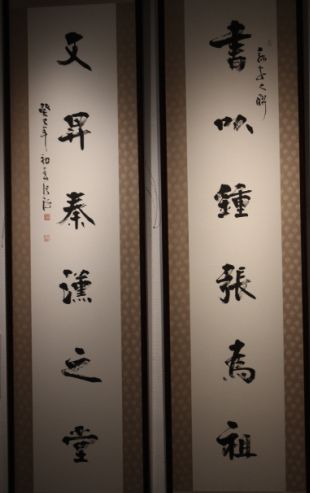 書以鍾張為祖
文昇秦漢之堂
癸巳年初